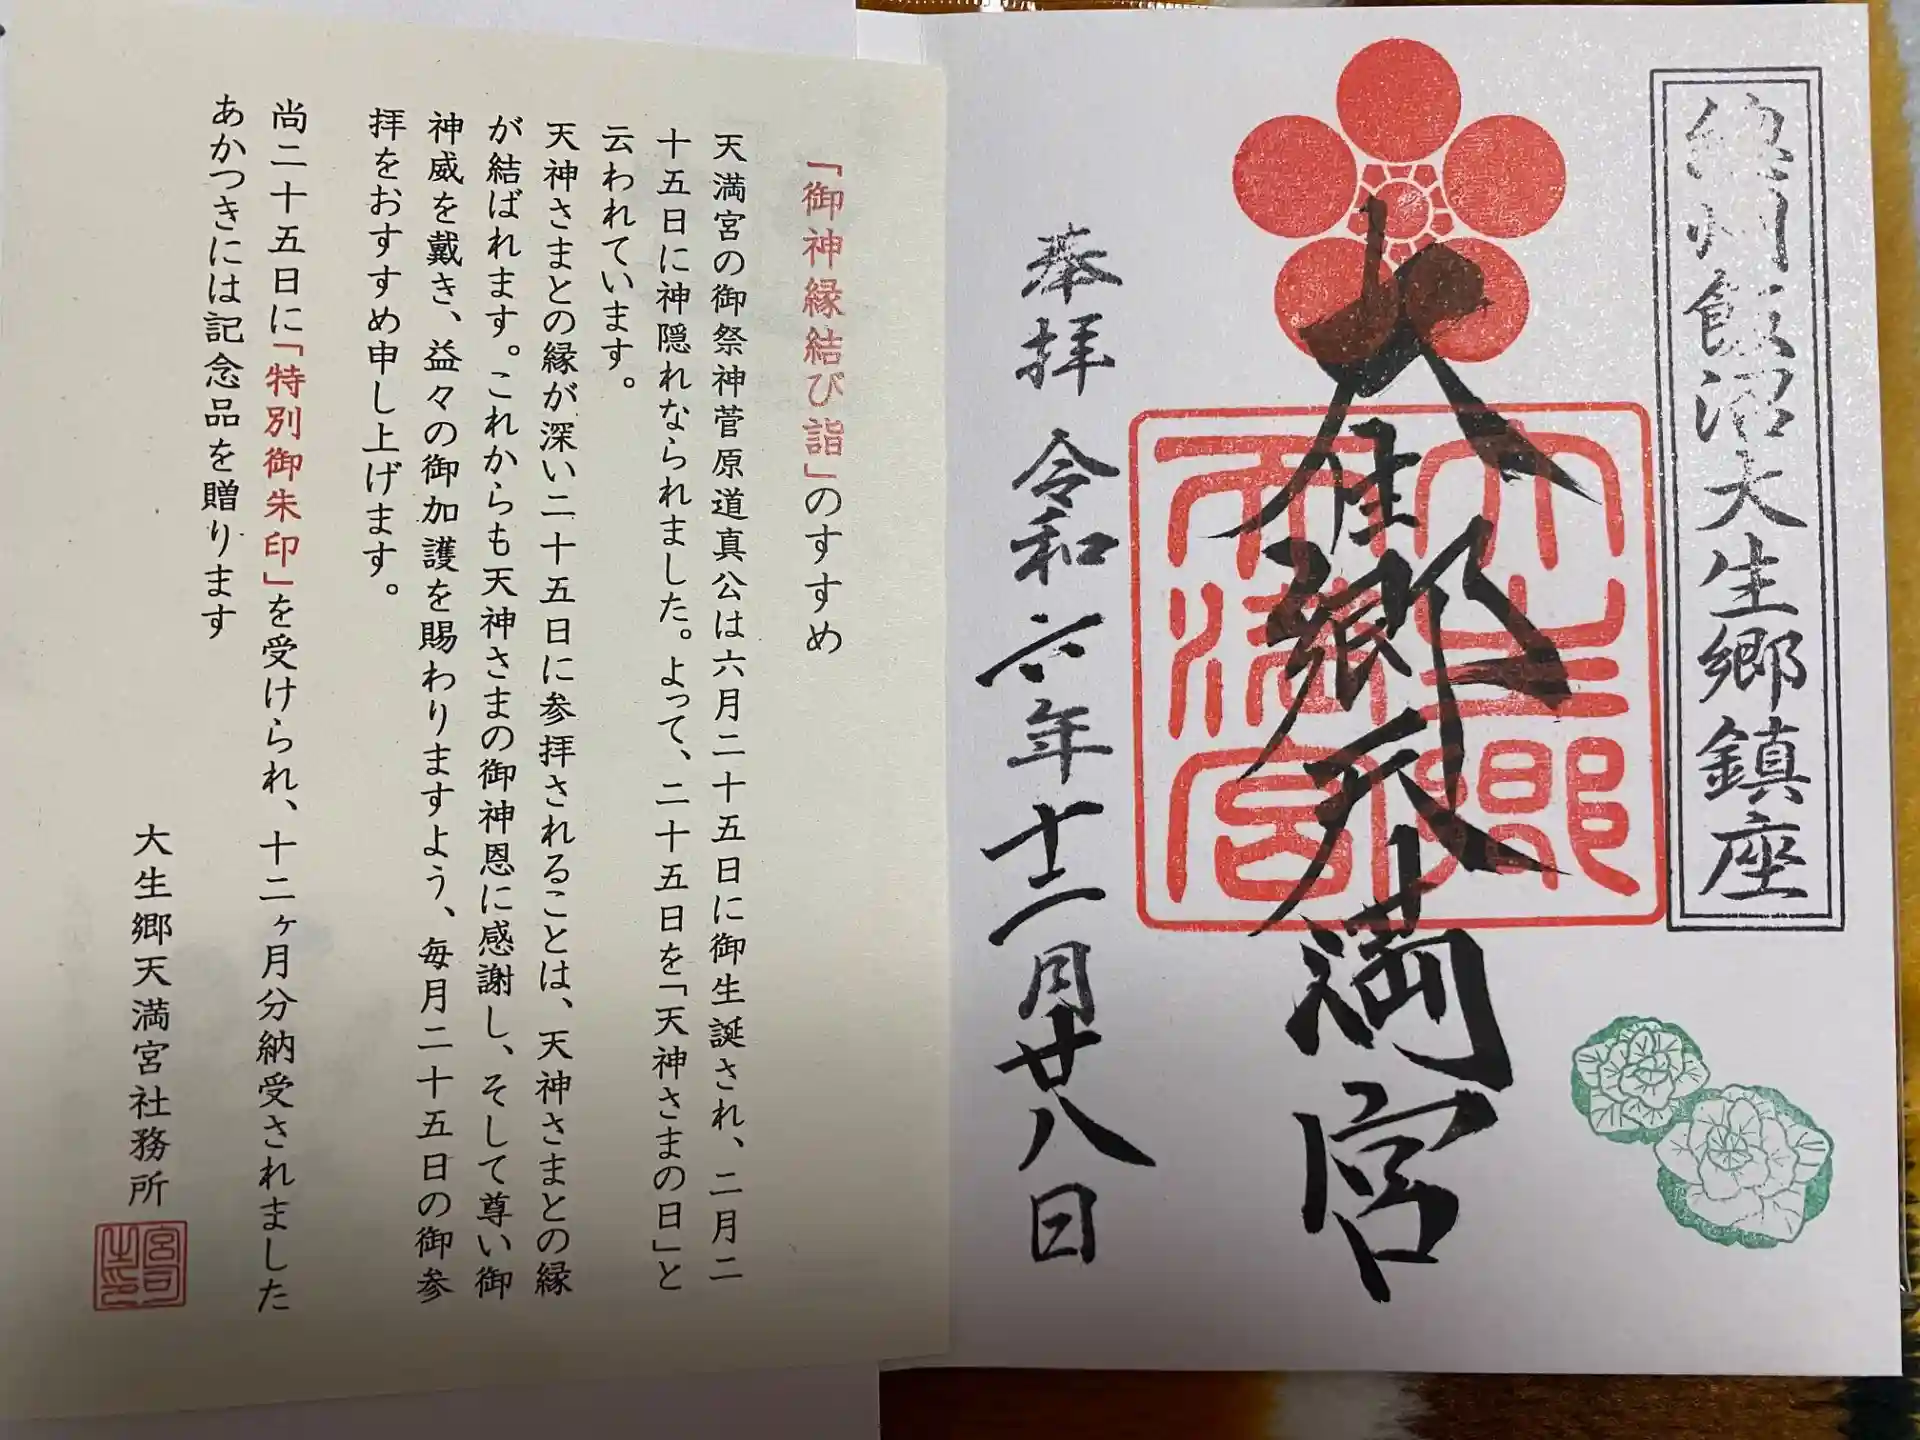 総州飯沼大生郷鎮座
大生郷天満宮
大生郷
天満宮
奉拝 令和六年十二月廿八日
「御神縁結び詣」のすすめ
天満宮の御祭神菅原道真公は六月二十五日に御生誕され、二月二
十五日に神隠れなられました。よって、二十五日を「天神さまの日」と
云われています。
天神さまとの縁が深い二十五日に参拝されることは、天神さまとの縁
が結ばれます。これからも天神さまの御神恩に感謝し、そして尊い御
神威を戴き、益々の御加護を賜わりますよう、毎月二十五日の御参
拝をおすすめ申し上げます。
尚二十五日に「特別御朱印」を受けられ、十二ヶ月分納受されました
あかつきには記念品を贈ります
大生郷天満宮社務所
宮司
之印